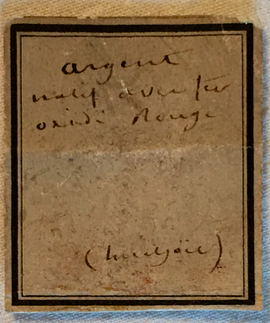 argent
natif avec fer
oxidé Rouge